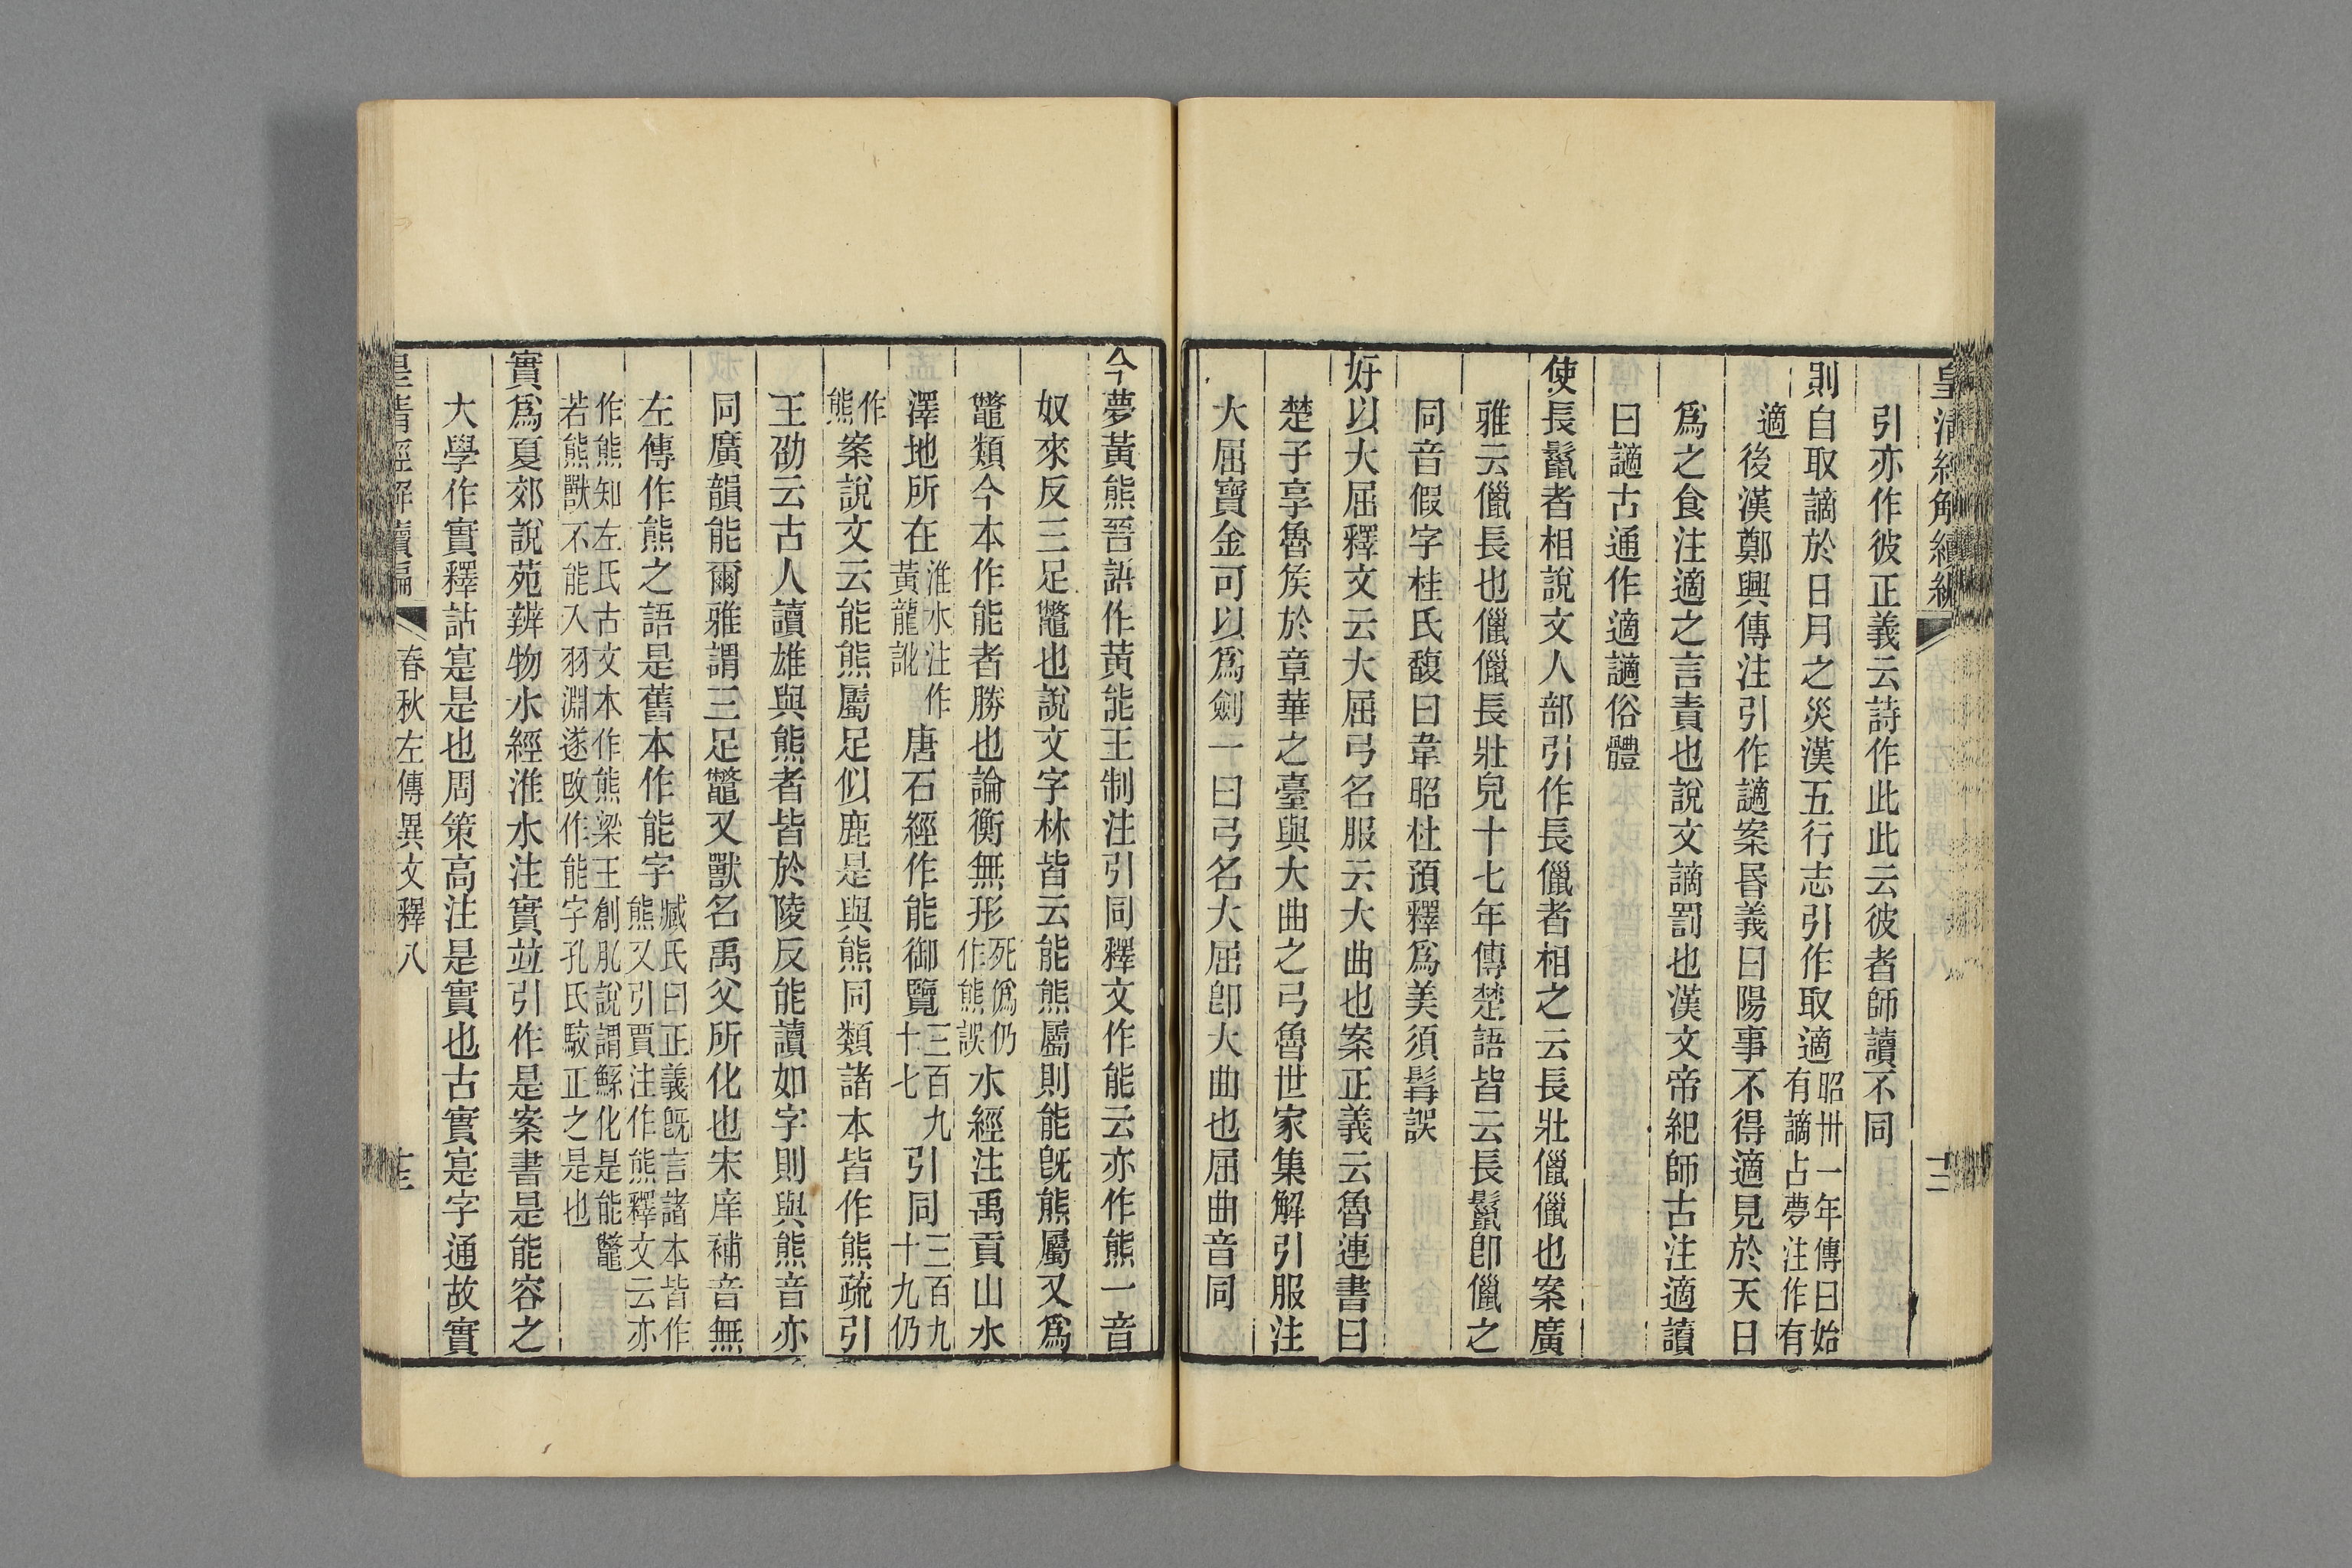 皇清經解續編
十二
引亦作彼正義云詩作此此云彼者師讀不同
則自取謫於日月之災漢五行志引作取適昭卅一年傳曰始有謫占夢注作有
適後漢鄭興傳注引作讁案昬義曰陽事不得適見於天日
爲之食注適之言責也說文謫罰也漢文帝紀師古注適讀
曰讁古通作適讁俗體
使長鬣者相說文人部引作長儠者相之云長壯儠儠也案廣
雅云儠長也儠儠長壯皃十七年傳楚語皆云長鬣卽儠之
同音假字桂氏馥曰韋昭杜預釋爲美須髯誤
好以大屈釋文云大屈弓名服云大曲也案正義云魯連書曰
楚子享魯矦於章華之臺與大曲之弓魯世家集解引服注
大屈寶金可以爲劍一曰弓名大屈卽大曲也屈曲音同
今夢黃熊晉語作黃能王制注引同釋文作能云亦作熊一音
奴來反三足鼈也說文字林皆云能熊屬則能旣熊屬又爲
鼈類今本作能者勝也論衡無形死僞仍作熊誤水經注禹貢山水
澤地所在淮水注作黃龍訛唐石經作能御覽三百九十七引同三百九十九仍
作熊案說文云能熊屬足似鹿是與熊同類諸本皆作熊疏引
王劭云古人讀雄與熊者皆於陵反能讀如字則與熊音亦
同廣韻能爾雅謂三足鼈又獸名禹父所化也宋庠補音無
左傳作熊之語是舊本作能字臧氏曰正義旣言諸本皆作熊又引賈注作熊釋文云亦
作熊知左氏古文本作熊梁王創肊說謂鯀化是能鼈若熊獸不能入羽淵遂改作能字孔氏駮正之是也
實爲夏郊說苑辨物水經淮水注實竝引作是案書是能容之
大學作實釋詁寔是也周策高注是實也古實寔字通故實
皇清經解續編
春秋左傳異文釋八
十三